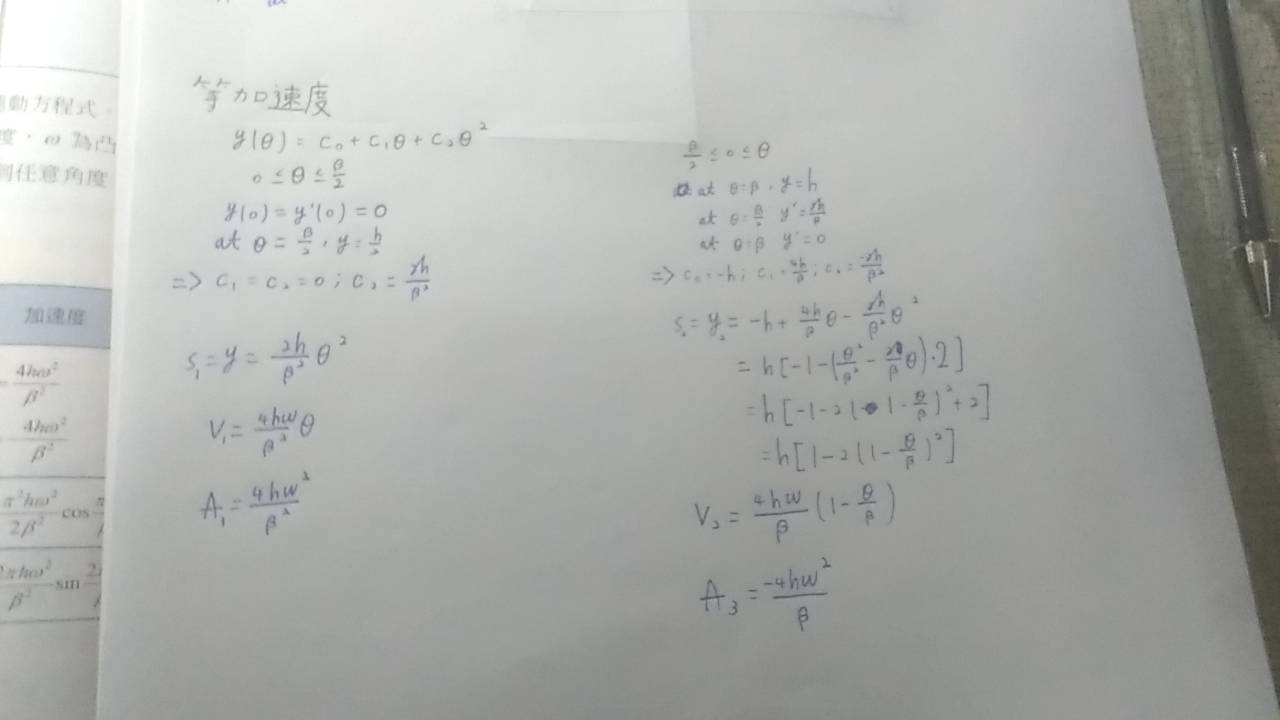 動方程式。
度，ω 為凸
任意角度
加速度
4hω²/β²
4hω²/β²
π²hω²/2β² cos
πhω²/β² sin
等加速度
y(θ) = C₀ + C₁θ + C₂θ²
0 ≤ θ ≤ β/2
y(0) = y'(0) = 0
at θ = β/2 , y = h/2
=> C₁ = C₂ = 0 ; C₂ = 2h/β²
S₁ = y = 2h/β² θ²
V₁ = 4hω/β² θ
A₁ = 4hω²/β²
β/2 ≤ 0 ≤ θ
at θ=β , y=h
at θ=β/2 y'=2h/β
at θ=β y'=0
=> C₀=-h ; C₁=4h/β ; C₂=-2h/β²
S₂ = y₂ = -h + 4h/β θ - 2h/β² θ²
= h[-1-(θ²/β² - 2/β θ)·2]
= h[-1-2(1-θ/β)²+2]
= h[1-2(1-θ/β)²]
V₂ = 4hω/β (1-θ/β)
A₃ = -4hω²/β